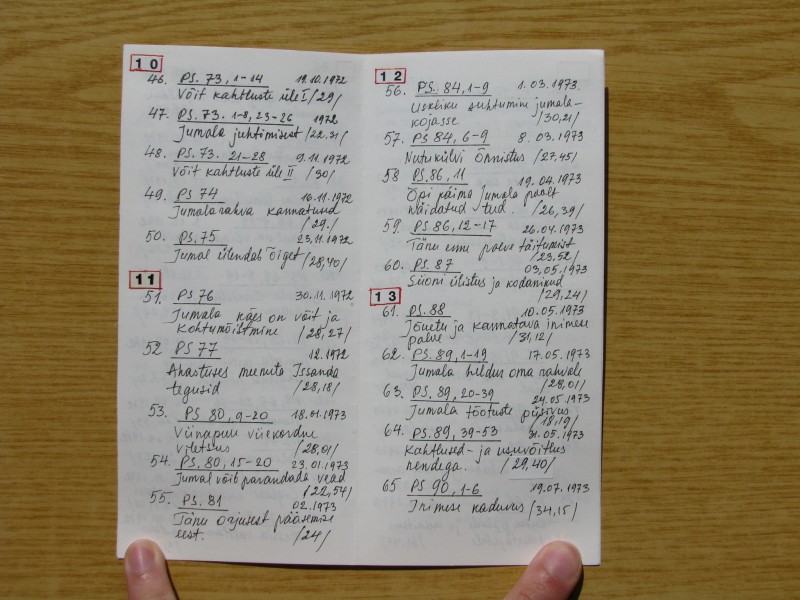 10
46. PS. 73, 1-14 19.10.1972
Võit kahtluste üle I /29/
47. PS. 73. 1-8, 23-26 1972
Jumala juhtimisest /22.31/
48. PS. 73. 21-28 9.11.1972
Võit kahtluste üle II /30/
49. PS 74 16.11.1972
Jumala rahva kannatused
/29./
50. PS. 75 23.11.1972
Jumal ülendab õiget /28,40/
11
51. PS 76 30.11.1972
Jumala käes on võit ja
kohtumõistmine /28,27/
52 PS 77 12.1972
Ahastuses meenuta Issanda
tegusid /28,18/
53. PS 80, 9-20 18.01.1973
Viinapuu viiekordne
viletsus /28,01/
54. PS. 80, 15-20 23.01.1973
Jumal võib parandada vead
/22,54/
55. PS. 81 02.1973
Tänu orjusest pääsemise
eest. /24/
12
56. PS. 84, 1-9 1.03.1973.
Uskliku suhtumine jumala-
kojasse /30,21/
57. PS 84, 6-9 8.03.1973
Nutukülvi Õnnistus /27,45/
58 PS. 86, 11 19.04.1973
Õpi käima Jumala poolt
näidatud teed. /26,39/
59. PS 86, 12-17 26.04.1973
Tänu enne palve täitumist
/23,52/
60. PS. 87 03.05.1973
Siioni ülistus ja kodanikud
/29,24/
13
61. PS. 88 10.05.1973
Jõuetu ja kannatava inimese
palve /31,12/
62. PS. 89, 1-19 17.05.1973
Jumala heldus oma rahvale
/28,01/
63. PS. 89, 20-39 24.05.1973
Jumala tõotuste püsivus
/18,19/
64. PS. 89, 39-53 31.05.1973
Kahtlused- ja usuvõitlus
nendega. /29,40/
65 PS 90, 1-6 19.07.1973
Inimese kaduvus /34,15/